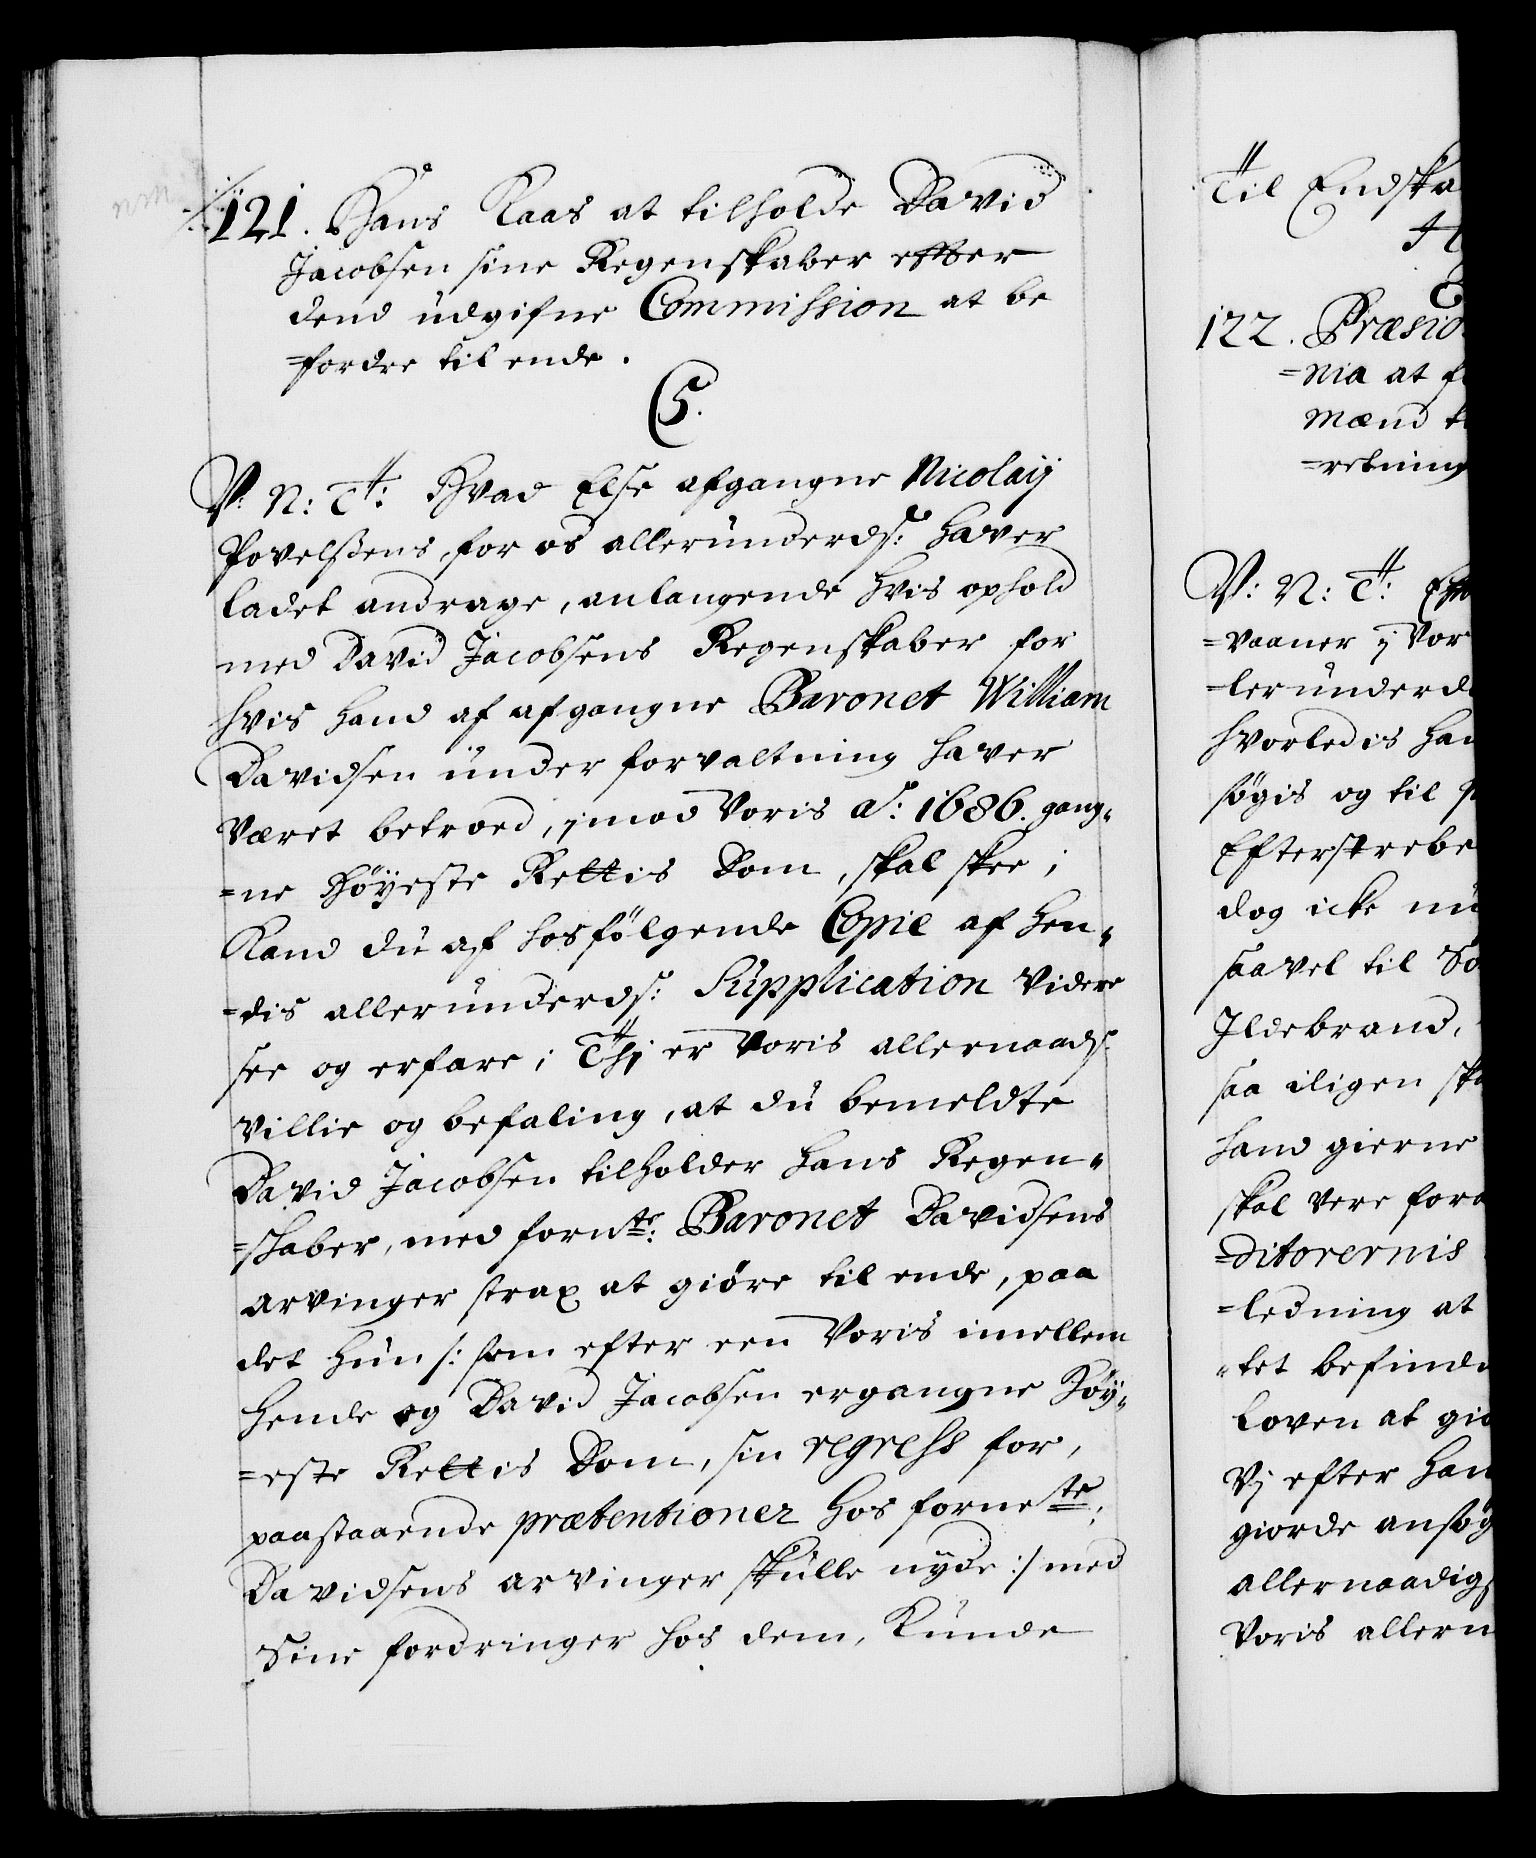 121. Hans Kaas at tilholde David
Jacobsen sine Regenskaber efter
dend udgifne Commission at be
=fordre til ende.
C5.
V: N: T: Hvad Else afgangne Nicolaij
Povelsens, for os allerunderds: haver
ladet andrage, anlangende hvis ophold
med David Jacobsens Regenskaber for
hvis hand af afgangne Baronet William
Davidsen under forvaltning haver
været betroed, imod Voris aô: 1686. gang=
=ne Höyeste Rettis Dom, skal skee;
Kand du af hosfölgende Copie af hen=
=dis allerunderds: Supplication videre
see og erfare; Thj er Voris allernaads:
villie og befaling, at du bemeldte
David Jacobsen tilholder hans Regen=
=skaber, med fornte: Baronet Davidsens
arvinger strax at giöre til ende, paa
det hun /: som efter een Voris imellem
hende og David Jacobsen ergangne Höy=
=este Rettis Dom, sin regress for,
paastaaende prætentioner hos fornete:
Davidsens arvinger skulle nyde :/ med
sine fordringer hos dem, Kunde
Til Endska
122. Præsid
=nia at f
mænd t
=retning
V: N: T: Eft
=vaaner j Vor
=lerunderd
hvorledis han
søgis og til
Efterstrebe
dog icke nu
saavel til So
Ildebrand,
saa iligen ska
hand gierne
skal vere for
=ditorernis
=ledning at
=tet befinde
Loven at gi
Vj efter han
giorde ansøg
allernaadigs
Voris allern